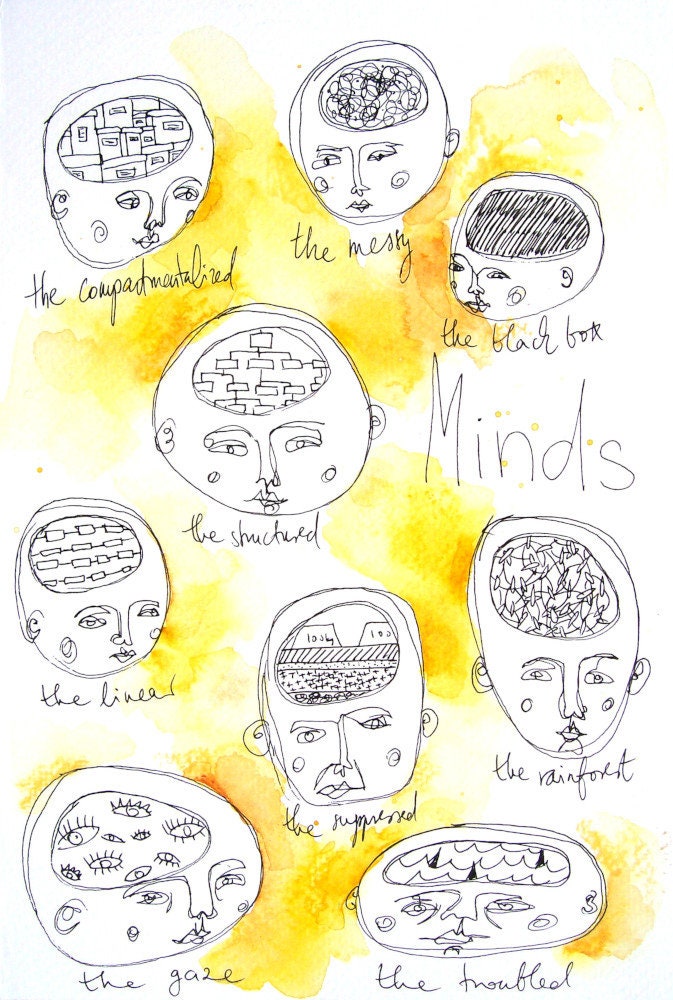 the compartmentalized
the messy
the black box
Minds
the structured
the linear
the rainforest
100kg
100
the suppressed
the gaze
the troubled